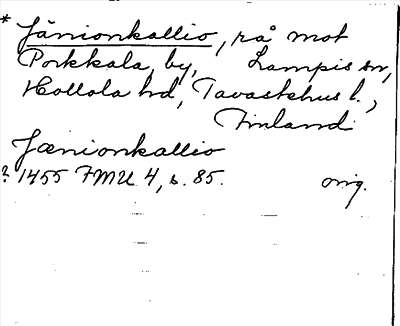 * Jänionkallio, rå mot
Porkkala, by, Lampis sn,
Hollola hd, Tavastehus l.,
Finland
Jænionkallio
? 1455 FMU 4, s. 85. orig.